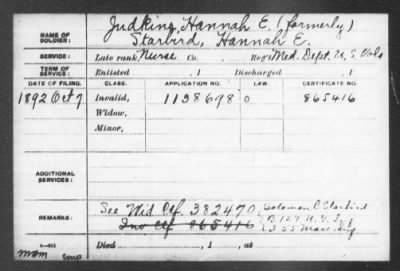 NAME OF SOLDIER: Judkins, Hannah E. (formerly)
Starbird, Hannah E.
SERVICE: Late rank, Nurse Co. , Reg't Med. Dept. U, S Vols
TERM OF SERVICE: Enlisted , 1 Discharged , 1
DATE OF FILING. CLASS. APPLICATION NO. LAW. CERTIFICATE NO.
1892 Oct 7 Invalid, 1138698 0 865416
Widow,
Minor,
ADDITIONAL SERVICES:
REMARKS: See Wid Ctf. 382470 Solomon C Starbird
Inv Ctf 865416 B 127 N.Y. Inf
I 55 Mass. Inf
Died , 1 , at